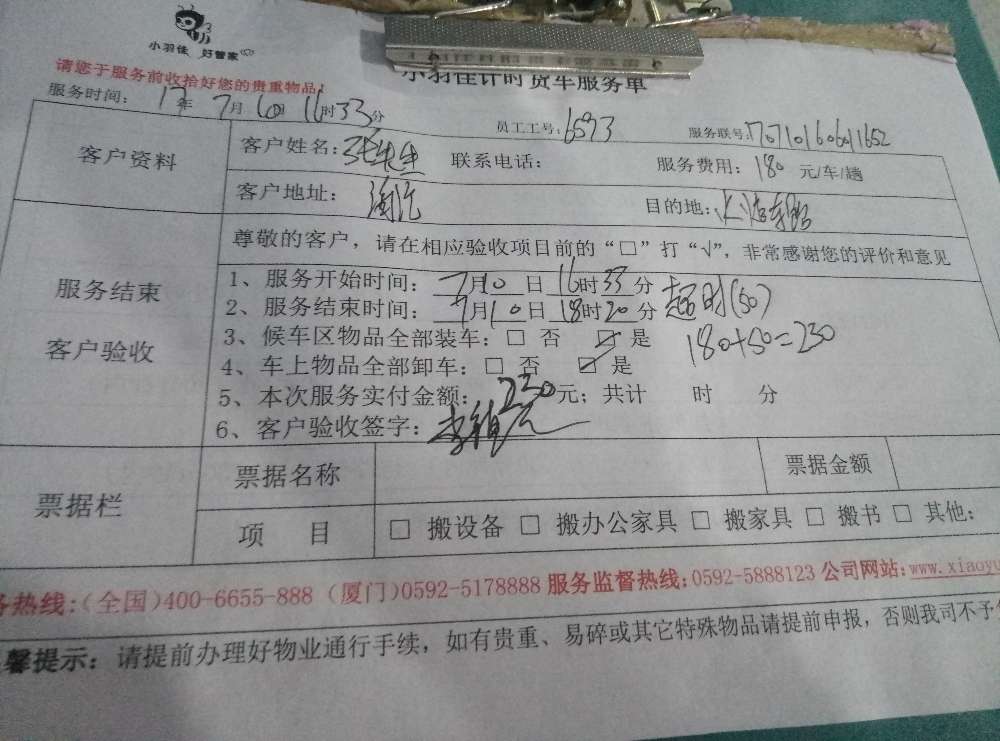 小羽佳 好管家
小羽佳计时货车服务单
请您于服务前收拾好您的贵重物品!
服务时间: 17年 7月 10日 16时33分 员工工号: 6593 服务联号: 1707101606011652
客户资料 客户姓名: 张先生 联系电话: 服务费用: 180 元/车/趟
客户地址: 海沧 目的地:
尊敬的客户，请在相应验收项目前的“□”打“√”, 非常感谢您的评价和意见
服务结束
客户验收
1、服务开始时间: 7月10日 16时33分 超时(50)
2、服务结束时间: 7月10日 18时20分
3、候车区物品全部装车: □ 否 ☑ 是 180+50=230
4、车上物品全部卸车: □ 否 ☑ 是
5、本次服务实付金额: 230元; 共计 时 分
6、客户验收签字:
票据栏 票据名称 票据金额
项 目 □ 搬设备 □ 搬办公家具 □ 搬家具 □ 搬书 □ 其他:
务热线:(全国)400-6655-888 (厦门)0592-5178888 服务监督热线:0592-5888123 公司网站:www.xiaoyu
馨提示: 请提前办理好物业通行手续，如有贵重、易碎或其它特殊物品请提前申报，否则我司不予